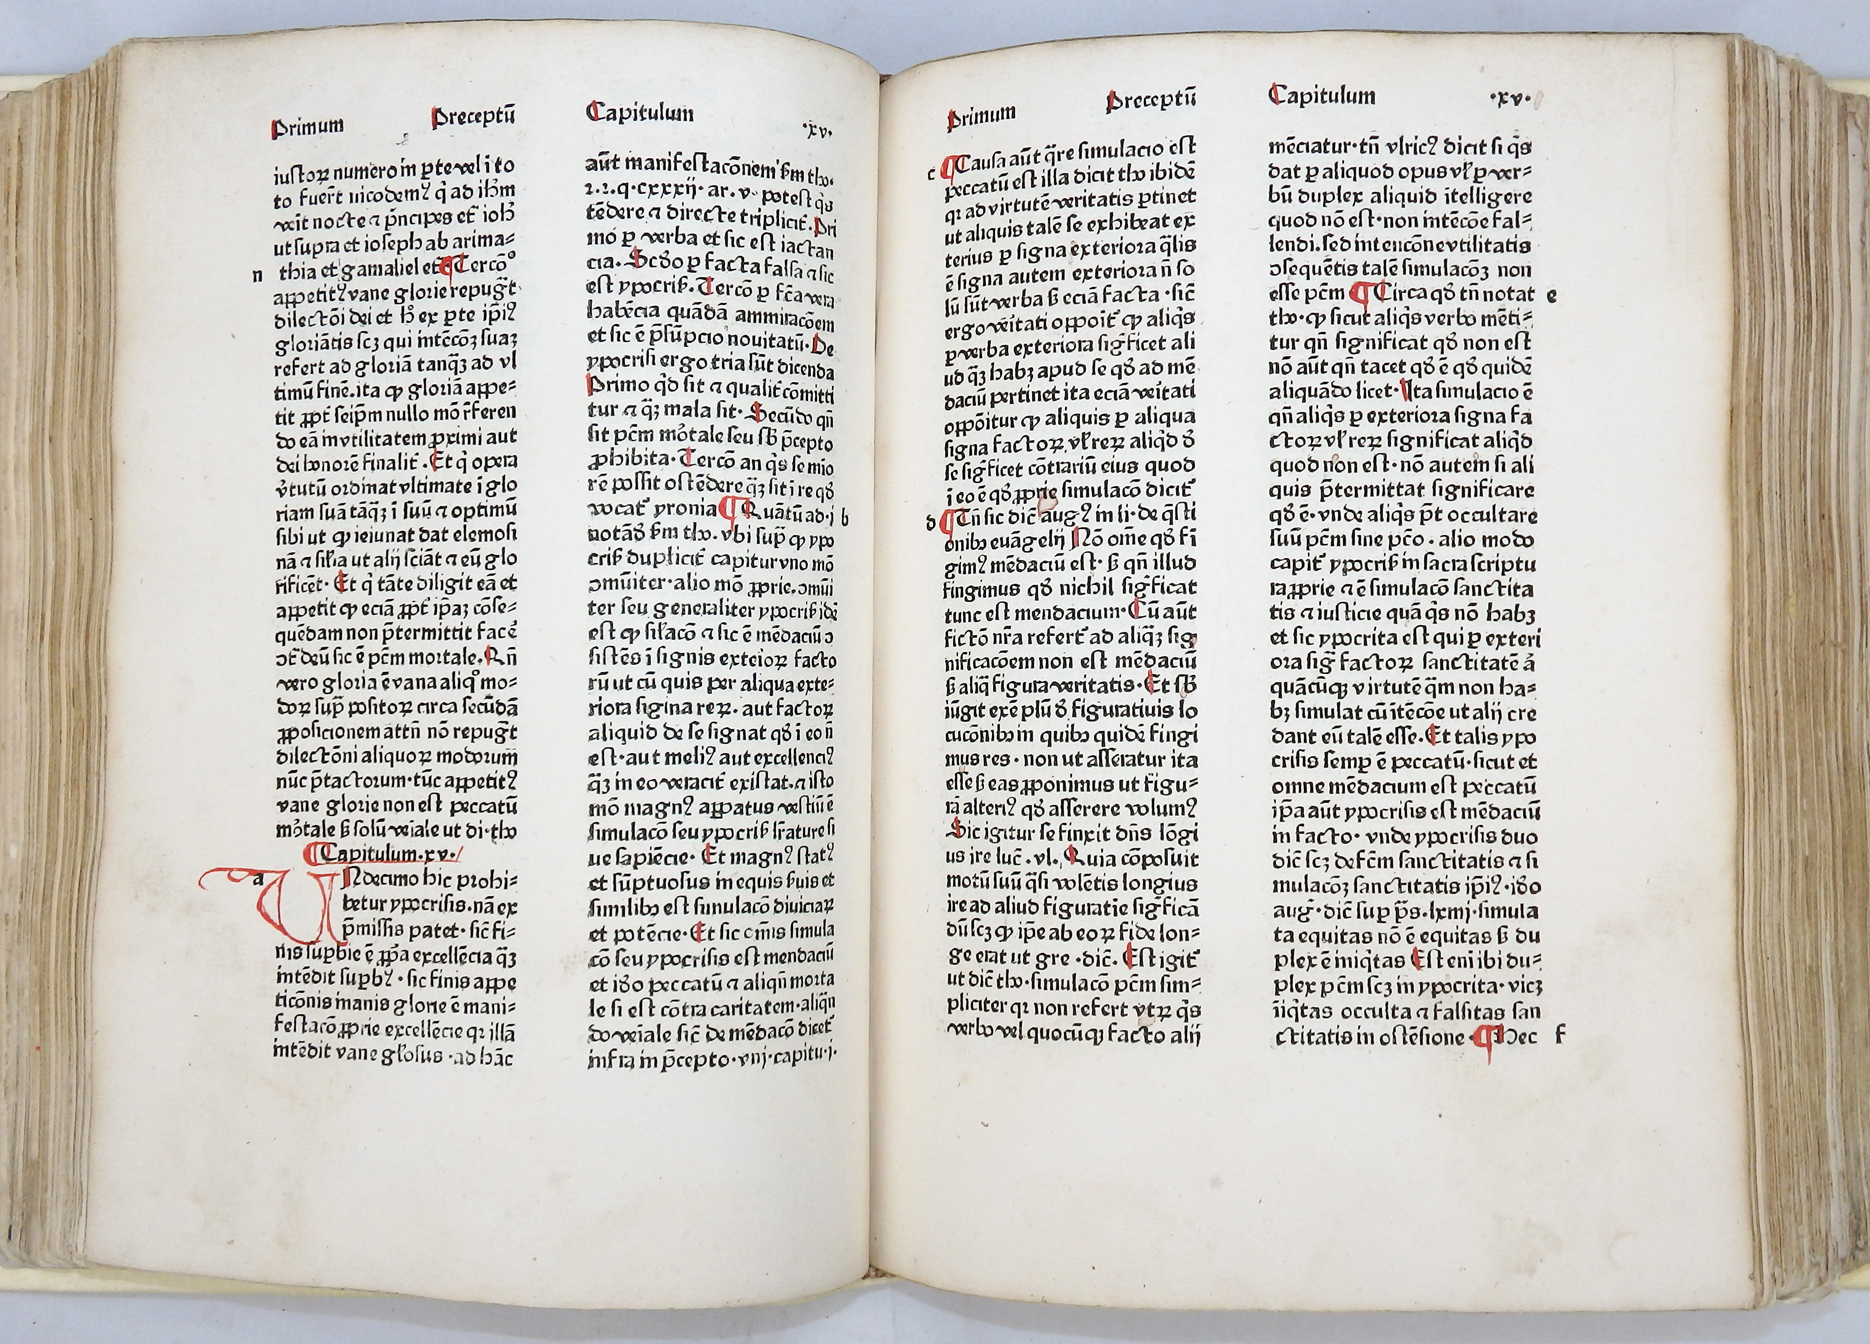 Primum Preceptū Capitulum ·xv·
iustoꝝ numero in ꝑte vel ī to
to fuer̄t nicodemꝰ q̇ ad ih̄m
veīt nocte ⁊ p̄ncipes et ioh̄
ut supra et ioseph ab arima⸗
n thia et gamaliel et ¶Tercō°
appetitꝰ vane glorie repugt̄
dilectōi dei et h̄ ex ꝑte ip̄iꝰ
gloriātis scꝫ qui intēcōꝫ suaꝫ
refert ad gloriā tanq̄ꝫ ad vl
timū finē.ita ꝙ gloriā appe⸗
tit ꝓpt̄ seip̄m nullo mō r̄feren
do eā in vtilitatem ꝓximi aut
dei honorē finalit̄. Et q̇ opera
v̄tutū ordinat vltimate ī glo
riam suā tāq̄ꝫ ī suū ⁊ optimū
sibi ut ꝙ ieiunat dat elemosi
nā ⁊ sil̄ia ut alij sciāt ⁊ eū glo
rificēt· Et q̇ tāte diligit eā et
appetit ꝙ eciā ꝓpt̄ ip̄aꝫ cōse⸗
quēdam non p̄termittit facē
ↄt̄ deū sic ē pc̄m mortale. Qn̄
vero gloria ē vana aliqº mo⸗
doꝝ sup̄ positoꝝ circa secūdā
ꝓposicionem attn̄ nō repugt̄
dilectōni aliquoꝝ modorum
nūc p̄tactorum·tūc appetitꝰ
vane glorie non est peccatū
mōtale s̄ solū veīale ut di·tho
¶Capitulum·xv·
a UNdecimo hic prohi⸗
betur ypocrisis.nā ex
p̄missis patet· sic̄ fi⸗
nis suꝑbie ē ꝓpa excellēcia q̄ꝫ
intēdit suꝑbꝰ · sic finis appe
ticōnis inanis glorie ē mani⸗
festacō ꝓprie excellēcie qꝛ illā
intēdit vane gl̄osus ·ad hāc
aūt manifestacōnem s̄m tho·
2.2.q·cxxxij· ar. v· potest q̇s
tēdere ⁊ directe triplicit̄. Pri
mo ꝑ verba et sic est iactan
cia. Scd̄o ꝑ facta falsa ⁊ sic
est ypocris̄. Tercō ꝑ fc̄a vera
habēcia quādā ammiracōem
et sic ē p̄sūpcio nouitatū· De
ypocrisi ergo tria sūt dicenda
Primo qd̄ sit ⁊ qualit̄ cōmitti
tur ⁊ q̄ꝫ mala sit· Secūdo qn̄
sit pc̄m mōtale seu sb̄ p̄cepto
ꝓhibita· Tercō an q̇s se mīo
rē possit ostēdere q̄ꝫ sit ī re qd̄
vocat̄ yronia ¶Quātū ad·j b
notād̄ s̄m tho. vbi sup̄ ꝙ ypo
cris̄ duplicit̄ capitur vno mō
ↄmūiter·alio mō ꝓprie.ↄmūi
ter seu generaliter ypocris̄ idē
est ꝙ sil̄acō ⁊ sic ē mēdaciū ↄ
sistēs ī signis exteioꝝ facto
rū ut cū quis per aliqua exte⸗
riora sigina reꝝ. aut factoꝝ
aliquid de se signat qd̄ ī eo n̄
est·aut meliꝰ aut excellencꝰ
q̄ꝫ in eo veracit̄ existat.⁊ isto
mō magnꝰ appatus vestiū ē
simulacō seu ypocris̄ lr̄ature si
ue sapiēcie· Et magnꝰ statꝰ
et sūptuosus in equis s̄uis et
similibꝫ est simulacō diuiciaꝝ
et potēcie· Et sic om̄is simula
cō seu ypocrisis est mendaciū
et id̄o peccatū ⁊ aliqn̄ morta
le si est cōtra caritatem·aliqn̄
do veīale sic̄ de mēdacō dicet̄
infra in p̄cepto·viij·capitu·j·
Primum Preceptū Capitulum ·xv·
c ¶Causa aūt q̄re simulacio est
peccatū est illa dicit tho ibidē
qꝛ ad virtutē veritatis ꝑtinet
ut aliquis talē se exhibeat ex
terius ꝑ signa exteriora q̄lis
ē signa autem exteriora n̄ so
lū sūt verba s̄ eciā facta · sic̄
ergo veītati oppoīt̄ ꝙ aliq̇s
ꝑ verba exteriora sigficet ali
ud q̄ꝫ habꝫ apud se qd̄ ad mē
daciū pertinet ita eciā veītati
oppōitur ꝙ aliquis ꝑ aliqua
signa factoꝝ vl̄ reꝝ aliqd̄ d̄
se sigficet cōtrariū eius quod
ī eo ē qd̄ ꝓprie simulacō dicit̄
d ¶Tn̄ sic dic̄ augꝰ in li·de q̄sti
onibꝫ euāgelij Nō om̄e qd̄ fī
gimꝰ mēdaciū est· s̄ qn̄ illud
fingimus qd̄ nichil sigficat
tunc est mendacium· Cū aūt
fictō nr̄a refert̄ ad aliq̄ꝫ sig
nificacōem non est mēdaciū
s̄ aliq̄ figura veritatis· Et sb̄
iūgit exē plū d̄ figuratiuis lo
cucōnibꝫ in quibꝫ quidē fingi
mus res · non ut asseratur ita
esse s̄ eas ꝓponimus ut figu⸗
rā alteriꝰ qd̄ asserere volumꝰ
Sic igitur se finxit dn̄s lōgi
us ire luc̄ .vl. Quia cōposuit
motū suū q̄si volētis longius
ire ad aliud figuratie sigficā
dū scꝫ ꝙ ip̄e ab eoꝝ fide lon⸗
ge erat ut gre ·dic̄. Est igit̄
ut dic̄ tho·simulacō pc̄m sim⸗
pliciter qꝛ non refert vtꝝ q̇s
verbo vel quocūqꝫ facto alij
mēciatur·tn̄ vlricꝰ dicit si q̇s
dat ꝑ aliquod opus vl̄ ꝑ ver⸗
bū duplex aliquid ītelligere
quod nō est·non intēcōe fal⸗
lendi.sed intencōne vtilitatis
ↄsequētis talē simulacōꝫ non
esse pc̄m ¶Circa qd̄ tn̄ notat e
tho·ꝙ sicut aliq̇s verbo mēti⸗
tur qn̄ significat qd̄ non est
nō aūt qn̄ tacet qd̄ ē qd̄ quidē
aliquādo licet· Ita simulacio ē
qn̄ aliq̇s ꝑ exteriora signa fa
ctoꝝ vl̄ reꝝ significat aliqd̄
quod non est·nō autem si ali
quis p̄termittat significare
qd̄ ē·vnde aliq̇s pt̄ occultare
suū pc̄m sine pc̄o · alio modo
capit̄ ypocris̄ in sacra scriptu
ra ꝓprie ⁊ ē simulacō sanctita
tis ⁊ iusticie quā q̇s nō habꝫ
et sic ypocrita est qui ꝑ exteri
ora siḡ factoꝝ sanctitatē ā
quācūqꝫ virtutē q̄m non ha⸗
bꝫ simulat cū ītēcōe ut alij cre
dant eū talē esse. Et talis ypo
crisis semꝑ ē peccatū·sicut et
omne mēdacium est peccatū
ip̄a aūt ypocrisis est mēdaciū
in facto· vnde ypocrisis duo
dic̄ scꝫ defc̄m sanctitatis ⁊ si
mulacōꝫ sanctitatis ip̄iꝰ·id̄o
auḡ· dic̄ suꝑ p̄s·lxiij·simula
ta equitas nō ē equitas s̄ du
plex ē iniq̇tas Est eni ibi du⸗
plex pc̄m scꝫ in ypocrita· vicꝫ
īiq̇tas occulta ⁊ falsitas san
ctitatis in ostēsione ¶Hec f